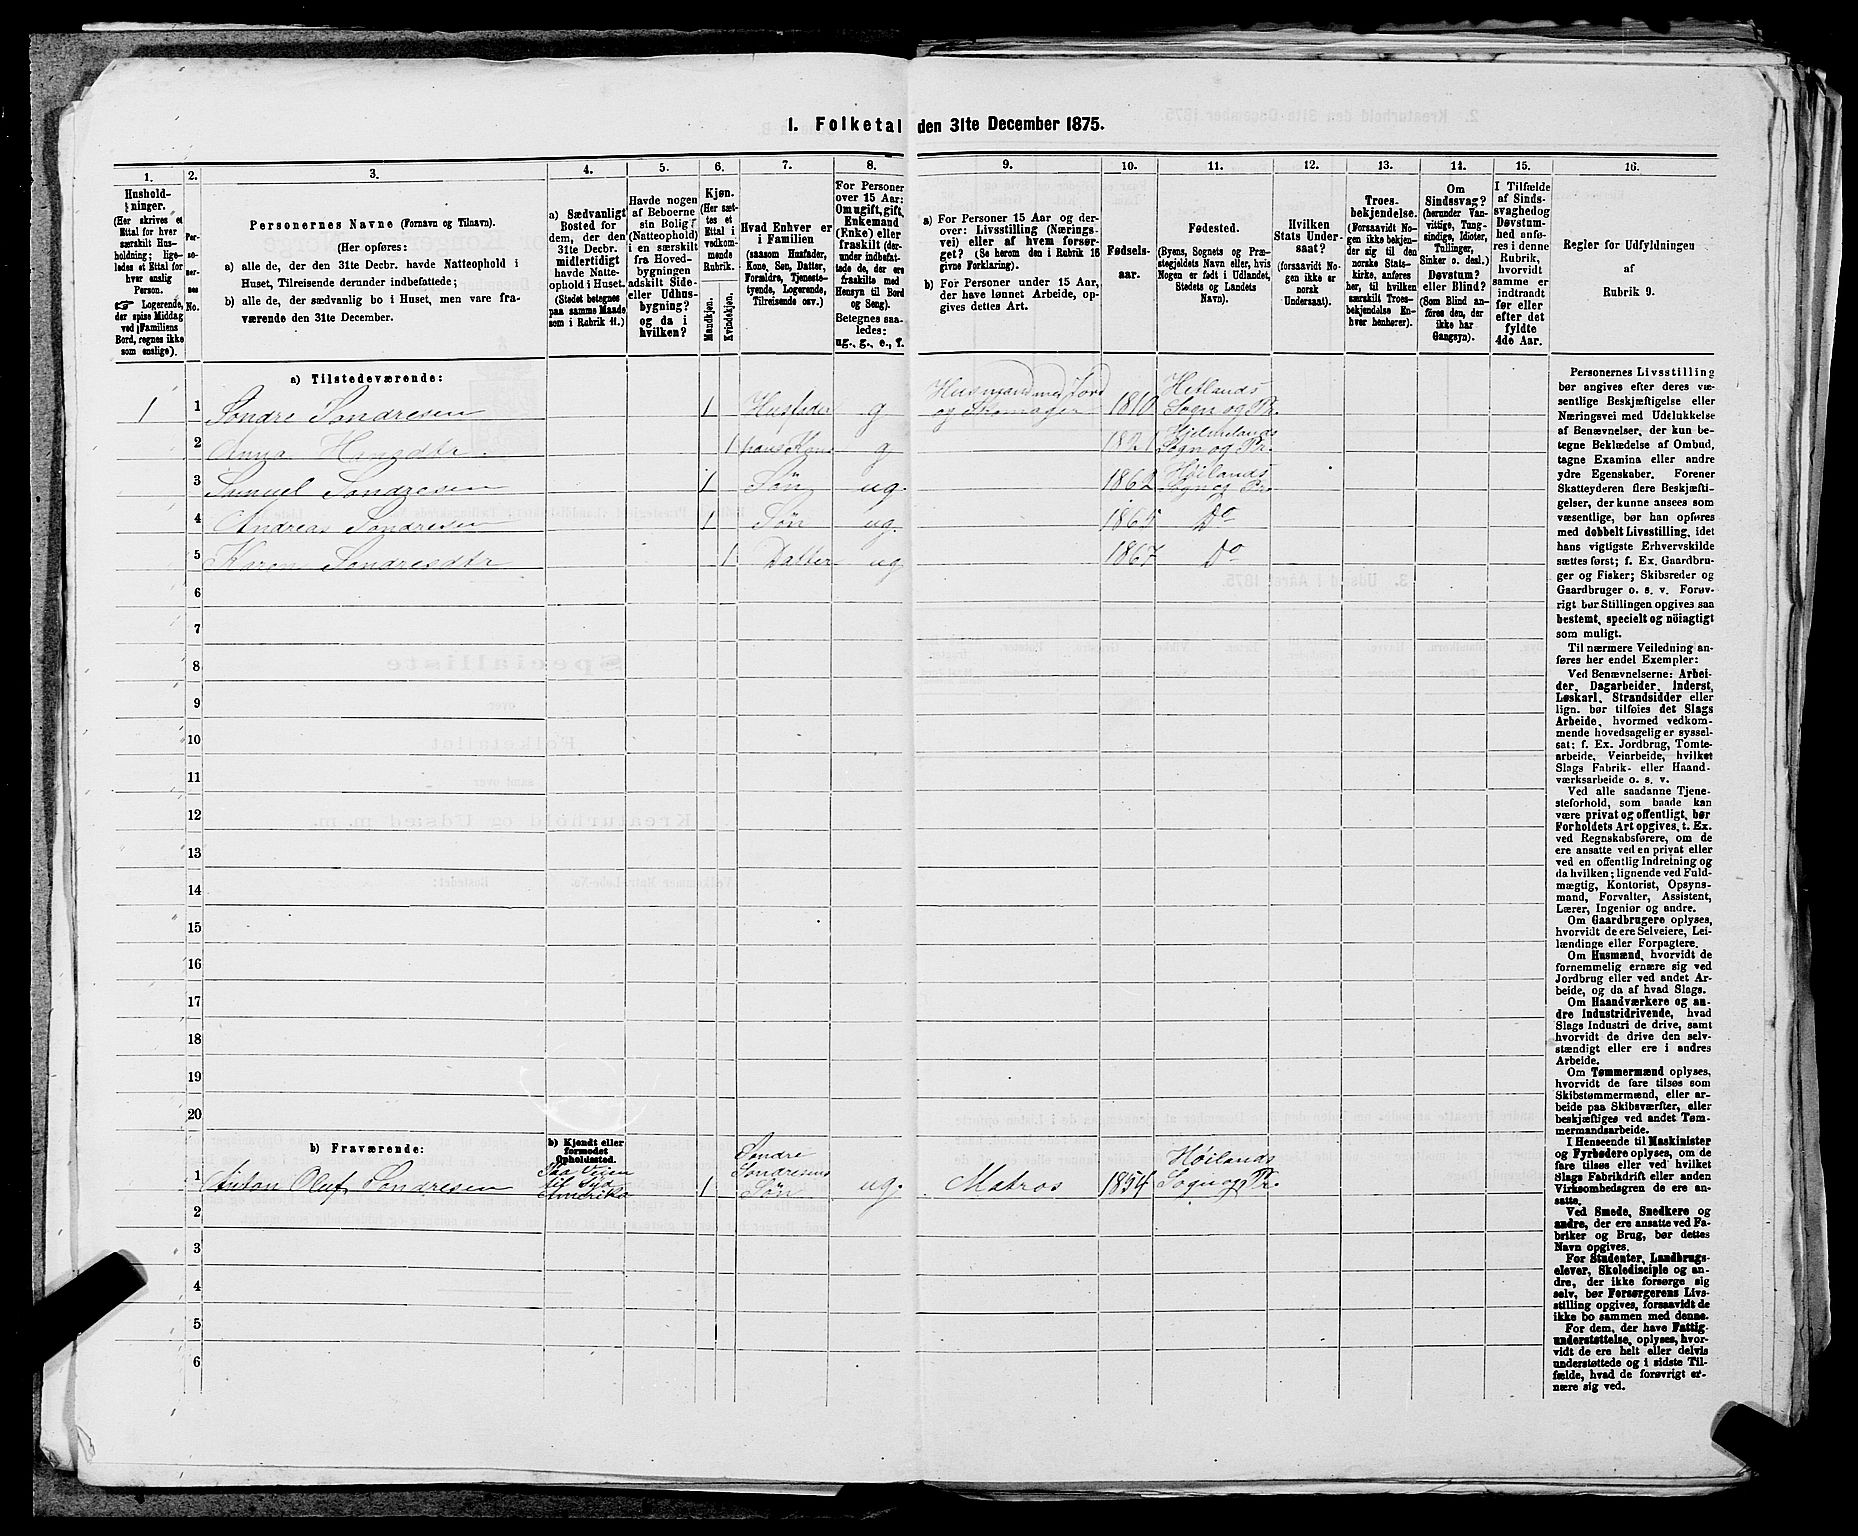 1. Folketal den 31te December 1875.
1.
2.
3.
4.
5.
6.
7.
8.
9.
10.
11.
12.
13.
14.
15.
16.
Hushold-
ninger.
(Her skrives et
Ettal for hver
særskilt Hus-
holdning; lige-
ledes et Ettal for
hver enslig
Person.
☞ Logerende,
der spise Middag
ved Familiens
Bord, regnes ikke
som enslige).
Per-
so-
ner-
nes
No.
Personernes Navne (Fornavn og Tilnavn).
(Her opføres:
a) alle de, der den 31te Decbr. havde Natteophold i
Huset, Tilreisende derunder indbefattede;
b) alle de, der sædvanlig bo i Huset, men vare fra-
værende den 31te December.
a) Sædvanligt
Bosted for
dem, der den
31te Decbr.
midlertidigt
havde Natte-
ophold i Huset.
(Stedet betegnes
paa samme Maade
som i Rubrik 11.)
Havde nogen
af Beboerne
sin Bolig
(Natteophold)
i en særskilt
fra Hoved-
bygningen
adskilt Side-
eller Udhus-
bygning?
og da i
hvilken?
Kjøn.
(Her sæt-
tes et
Ettal i
vedkom-
mende
Rubrik.
Mandkjøn.
Kvindekjøn.
Hvad Enhver er
i Familien
(saasom Husfader,
Kone, Søn, Datter,
Forældre, Tjeneste-
tyende, Logerende,
Tilreisende osv.)
For Personer
over 15 Aar:
Om ugift, gift,
Enkemand
(Enke) eller
fraskilt (der-
under indbefat-
tede de, der ere
fraskilte med
Hensyn til Bord
og Seng).
Betegnes saa-
ledes:
ug., g., e., f.
a) For Personer 15 Aar og der-
over: Livsstilling (Nærings-
vei) eller af hvem forsør-
get? (Se herom den i Rubrik 16
givne Forklaring).
b) For Personer under 15 Aar,
der have lønnet Arbeide, op-
gives dettes Art.
Fødsels-
aar.
Fødested.
(Byens, Sognets og Præ-
stegjeldets Navn eller, hvis
Nogen er født i Udlandet,
Stedets og Landets
Navn).
Hvilken
Stats Under-
saat?
(forsaavidt No-
gen ikke er
norsk
Undersaat).
Troes-
bekjendelse.
(Forsaavidt No-
gen ikke bekjen-
der sig til den
norske Stats-
kirke, anføres
her, til hvilken
særskilt Troes-
bekjendelse En-
hver henhører).
Om
Sindssvag?
(herunder Van-
vittige, Tung-
sindige, Idioter,
Tullinger,
Sinker o. desl.)
Døvstum?
eller Blind?
(Som Blind an-
føres den, der
ikke har
Gangsyn).
I Tilfælde
af Sinds-
svaghed og
Døvstum-
hed anfø-
res i denne
Rubrik,
hvorvidt
samme er
indtraadt
før eller
efter det
fyldte
4de Aar.
Regler for Udfyldningen
af
Rubrik 9.
a) Tilstedeværende:
1 1 Søndre Søndresen 1 Husfader g Husmand med Jord og Skomager 1810 Hetlands Sogn og Pr.
2 Anna 1 hans Kone g 1821 Hjelmelands Sogn og Pr.
3 Samuel Søndresen 1 Søn ug. 1862 Høilands Sogn og Pr.
4 Andreas Søndresen 1 Søn ug. 1865 Do
5 Karen Søndresdtr 1 Datter ug 1867 Do
6
7
8
9
10
11
12
13
14
15
16
17
18
19
20
b) Fraværende:
b) Kjendt eller
formodet
Opholdssted.
1 Anton Oluf Søndresen Paa Veien til Syd Amerika 1 Søndre Søndresens Søn ug. Matros 1854 Høilands Sogn og Pr.
2
3
4
5
6
Personernes Livsstilling
bør angives efter deres væ-
sentlige Beskjæftigelse eller
Næringsvei med Udelukkelse
af Benævnelser, der kun be-
tegne Beklædelse af Ombud,
tagne Examina eller andre
ydre Egenskaber. Forener
Skatteyderen flere Beskjæfti-
gelser, der kunne ansees som
væsentlige, bør han opføres
med dobbelt Livsstilling, idet
hans vigtigste Erhvervskilde
sættes først; f. Ex. Gaardbru-
ger og Fisker; Skibsreder og
Gaardbruger o. s. v. Forøv-
rigt bør Stillingen opgives saa
bestemt, specielt og nöiagtigt
som muligt.
Til nærmere Veiledning an-
føres her endel Exempler:
Ved Benævnelserne: Arbei-
der, Dagarbeider, Inderst,
Løskarl, Strandsidder eller
lign. bør tilføies det Slags
Arbeide, hvormed vedkom-
mende hovedsagelig er syssel-
sat; f. Ex. Jordbrug, Tomte-
arbeide, Veiarbeide, hvilket
Slags Fabrik- eller Haand-
værksarbeide o. s. v.
Ved alle saadanne Tjene-
steforhold, som baade kan
være privat og offentligt, bør
Forholdets Art opgives, t. Ex.
ved Regnskabsførere, om de
ere ansatte ved en privat eller
ved en offentlig Indretning og
da hvilken; lignende ved Fuld-
mægtig, Kontorist, Opsyns-
mand, Forvalter, Assistent,
Lærer, Ingeniør og andre.
Om Gaardbrugere oplyses,
hvorvidt de ere Selveiere, Lei-
lændinge eller Forpagtere.
Om Husmænd, hvorvidt de
fornemmelig ernære sig ved
Jordbrug eller ved andet Ar-
beide, og da af hvad Slags.
Om Haandværkere og an-
dre Industridrivende, hvad
Slags Industri de drive, samt
hvorvidt de drive den selv-
stændigt eller ere i andres
Arbeide.
Om Tømmermænd oplyses,
hvorvidt de fare tilsøs som
Skibstømmermænd, eller ar-
beide paa Skibsværfter, eller
beskjæftiges ved andet Tøm-
mermandsarbeide.
I Henseende til Maskinister
og Fyrbødere oplyses, om de
fare tilsøs eller ved hvilket
Slags Fabrikdrift eller anden
Virksomhedsgren de ere an-
satte.
Ved Smede, Snedkere og
andre, der ere ansatte ved Fa-
briker og Brug, bør dettes
Navn opgives.
For Studenter, Landbrugs-
elever, Skoledisciple og an-
dre, der ikke forsørge sig
selv, bør Forsørgerens Livs-
stilling opgives, forsaavidt de
ikke bo sammen med denne.
For dem, der have Fattig-
understøttelse, oplyses, hvor-
vidt de ere helt eller delvis
understøttede og i sidste Til-
fælde, hvad de forøvrigt er-
nære sig ved.